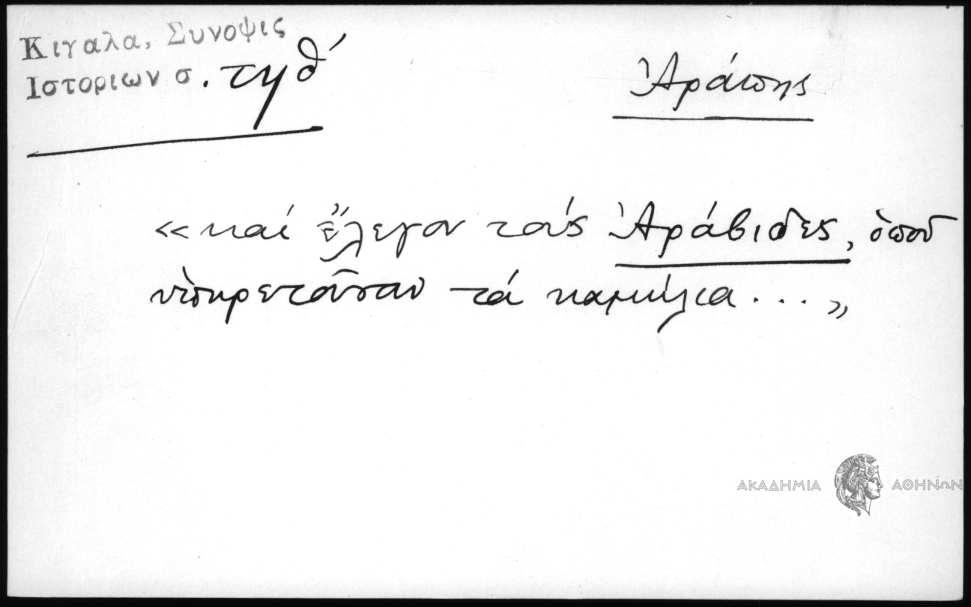 Κιγαλα, Συνοψις
Ιστοριων σ. τηθ´
Ἀράπης
«καί ἔλεγον τούς Ἀράβιδες, ὁποῦ
ὑπηρετοῦσαν τά καμήλια...»
ΑΚΑΔΗΜΙΑ ΑΘΗΝΩΝ